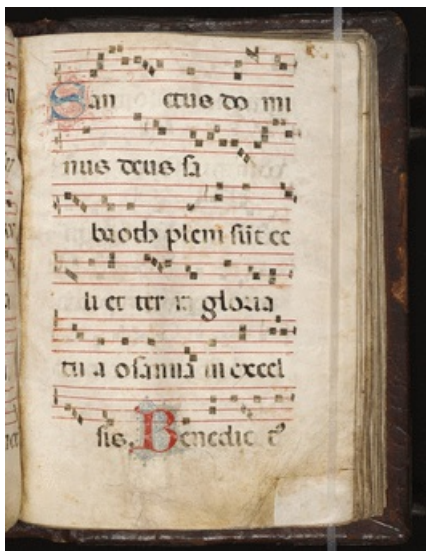 San ctus do mi
nus deus sa
baoth pleni sūt ce
li et ter ra gloria
tu a osanna in excel
sis. Benedic t᾽